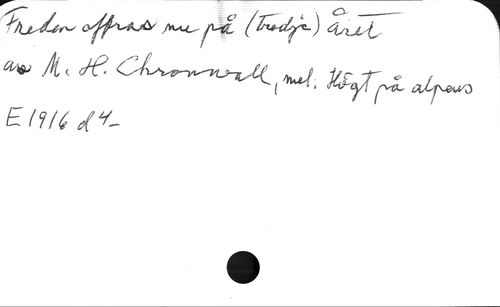 Freden offras nu på (tredje) året
av M. H. Chronwall, mel. Högt på alpens
E 1916 d 4-